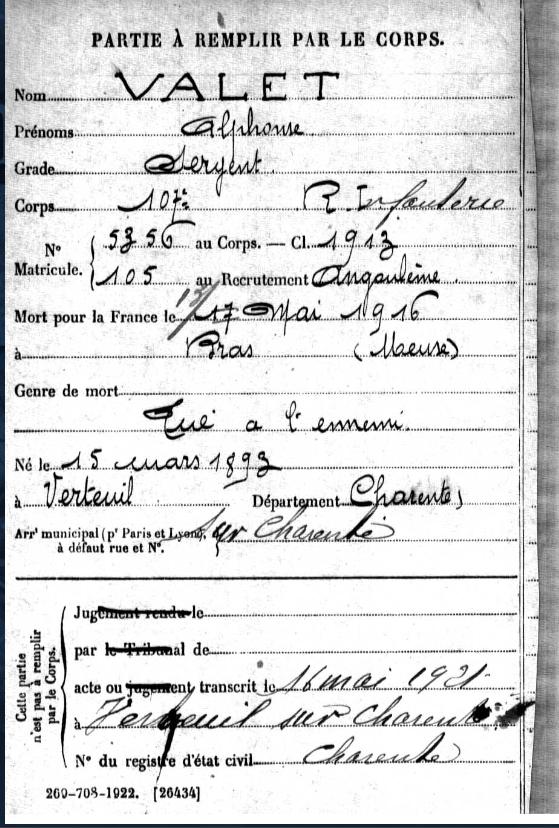 PARTIE À REMPLIR PAR LE CORPS.
Nom VALET
Prénoms Alphonse
Grade Sergent
Corps 107e R. Infanterie
N° Matricule. 5356 au Corps. — Cl. 1913
105 au Recrutement Angoulème
Mort pour la France le 17 Mai 1916
à Bras (Meuse)
Genre de mort
Tué a l'ennemi.
Né le 15 mars 1893
à Verteuil Département Charente
Arr' municipal (p' Paris et Lyon), sur Charente
à défaut rue et N°.
Cette partie n'est pas à remplir par le Corps.
Jugement rendu le
par le Tribunal de
acte ou jugement transcrit le 16 mai 1921
à Verteuil sur Charente
N° du registre d'état civil Charente
269-708-1922. [26434]